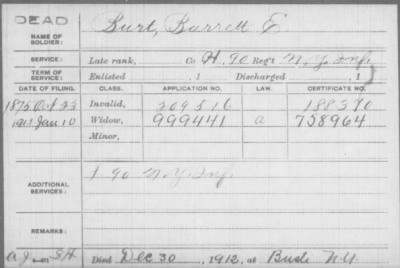 DEAD
NAME OF SOLDIER: Burt, Barrett E.
SERVICE: Late rank, Co. H, 90 Reg't N.Y. Inf.
TERM OF SERVICE: Enlisted , 1 Discharged , 1
DATE OF FILING. CLASS. APPLICATION NO. LAW. CERTIFICATE NO.
1875 Oct 23 Invalid, 209516 188370
1913 Jan 10 Widow, 999441 a 758964
Minor,
ADDITIONAL SERVICES: 90 N.Y. Inf.
REMARKS:
Died Dec 30, 1912, at Busti N.Y.